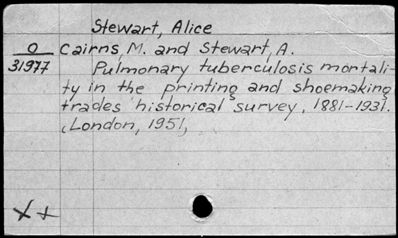 Stewart, Alice
O
31977
Cairns, M. and Stewart, A.
Pulmonary tuberculosis mortali-
ty in the printing and shoemaking
trades historical survey, 1881-1931.
(London, 1951,